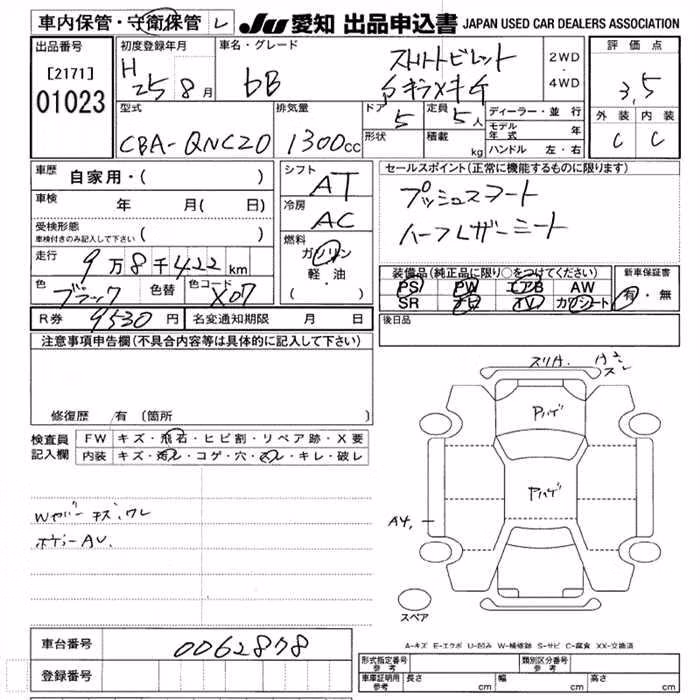 車内保管・守衛保管 レ
JU 愛知 出品申込書 JAPAN USED CAR DEALERS ASSOCIATION
出品番号
[2171]
01023
初度登録年月
H
25 8月
車名・グレード
bB
ストリートビレット
2WD
・
4WD
評価点
3.5
外装 内装
C C
型式
CBA-QNC20
排気量
1300cc
ドア
5
形状
定員
5人
積載
kg
ディーラー・並行
モデル年式 年
ハンドル 左・右
車歴
自家用・( )
車検
年 月( 日)
受検形態
車検付きのみ記入して下さい ( )
走行
9万8千422km
色
ブラック
色替
色コード
X07
シフト
AT
冷房
AC
燃料
ガソリン
軽・油
・( )
セールスポイント(正常に機能するものに限ります)
プッシュスタート
ハーフレザーシート
装備品(純正品に限り○をつけてください)
PS PW エアB AW
SR ナビ TV カワシート
新車保証書
有・無
R券 9530円 名変通知期限 月 日
後日品
注意事項申告欄(不具合内容等は具体的に記入して下さい)
修復歴 有 (箇所
検査員
記入欄
FW キズ・飛石・ヒビ割・リペア跡・X要
内装 キズ・汚レ・コゲ・穴・スレ・キレ・破レ
Pハゲ
Pハゲ
A4,
スペア
A-キズ E-エクボ U-凹み W-補修跡 S-サビ C-腐食 XX-交換済
車台番号 0062878
登録番号
形式指定番号 参考
類別区分番号 参考
車庫証明用 参考 長さ cm 幅 cm 高さ cm